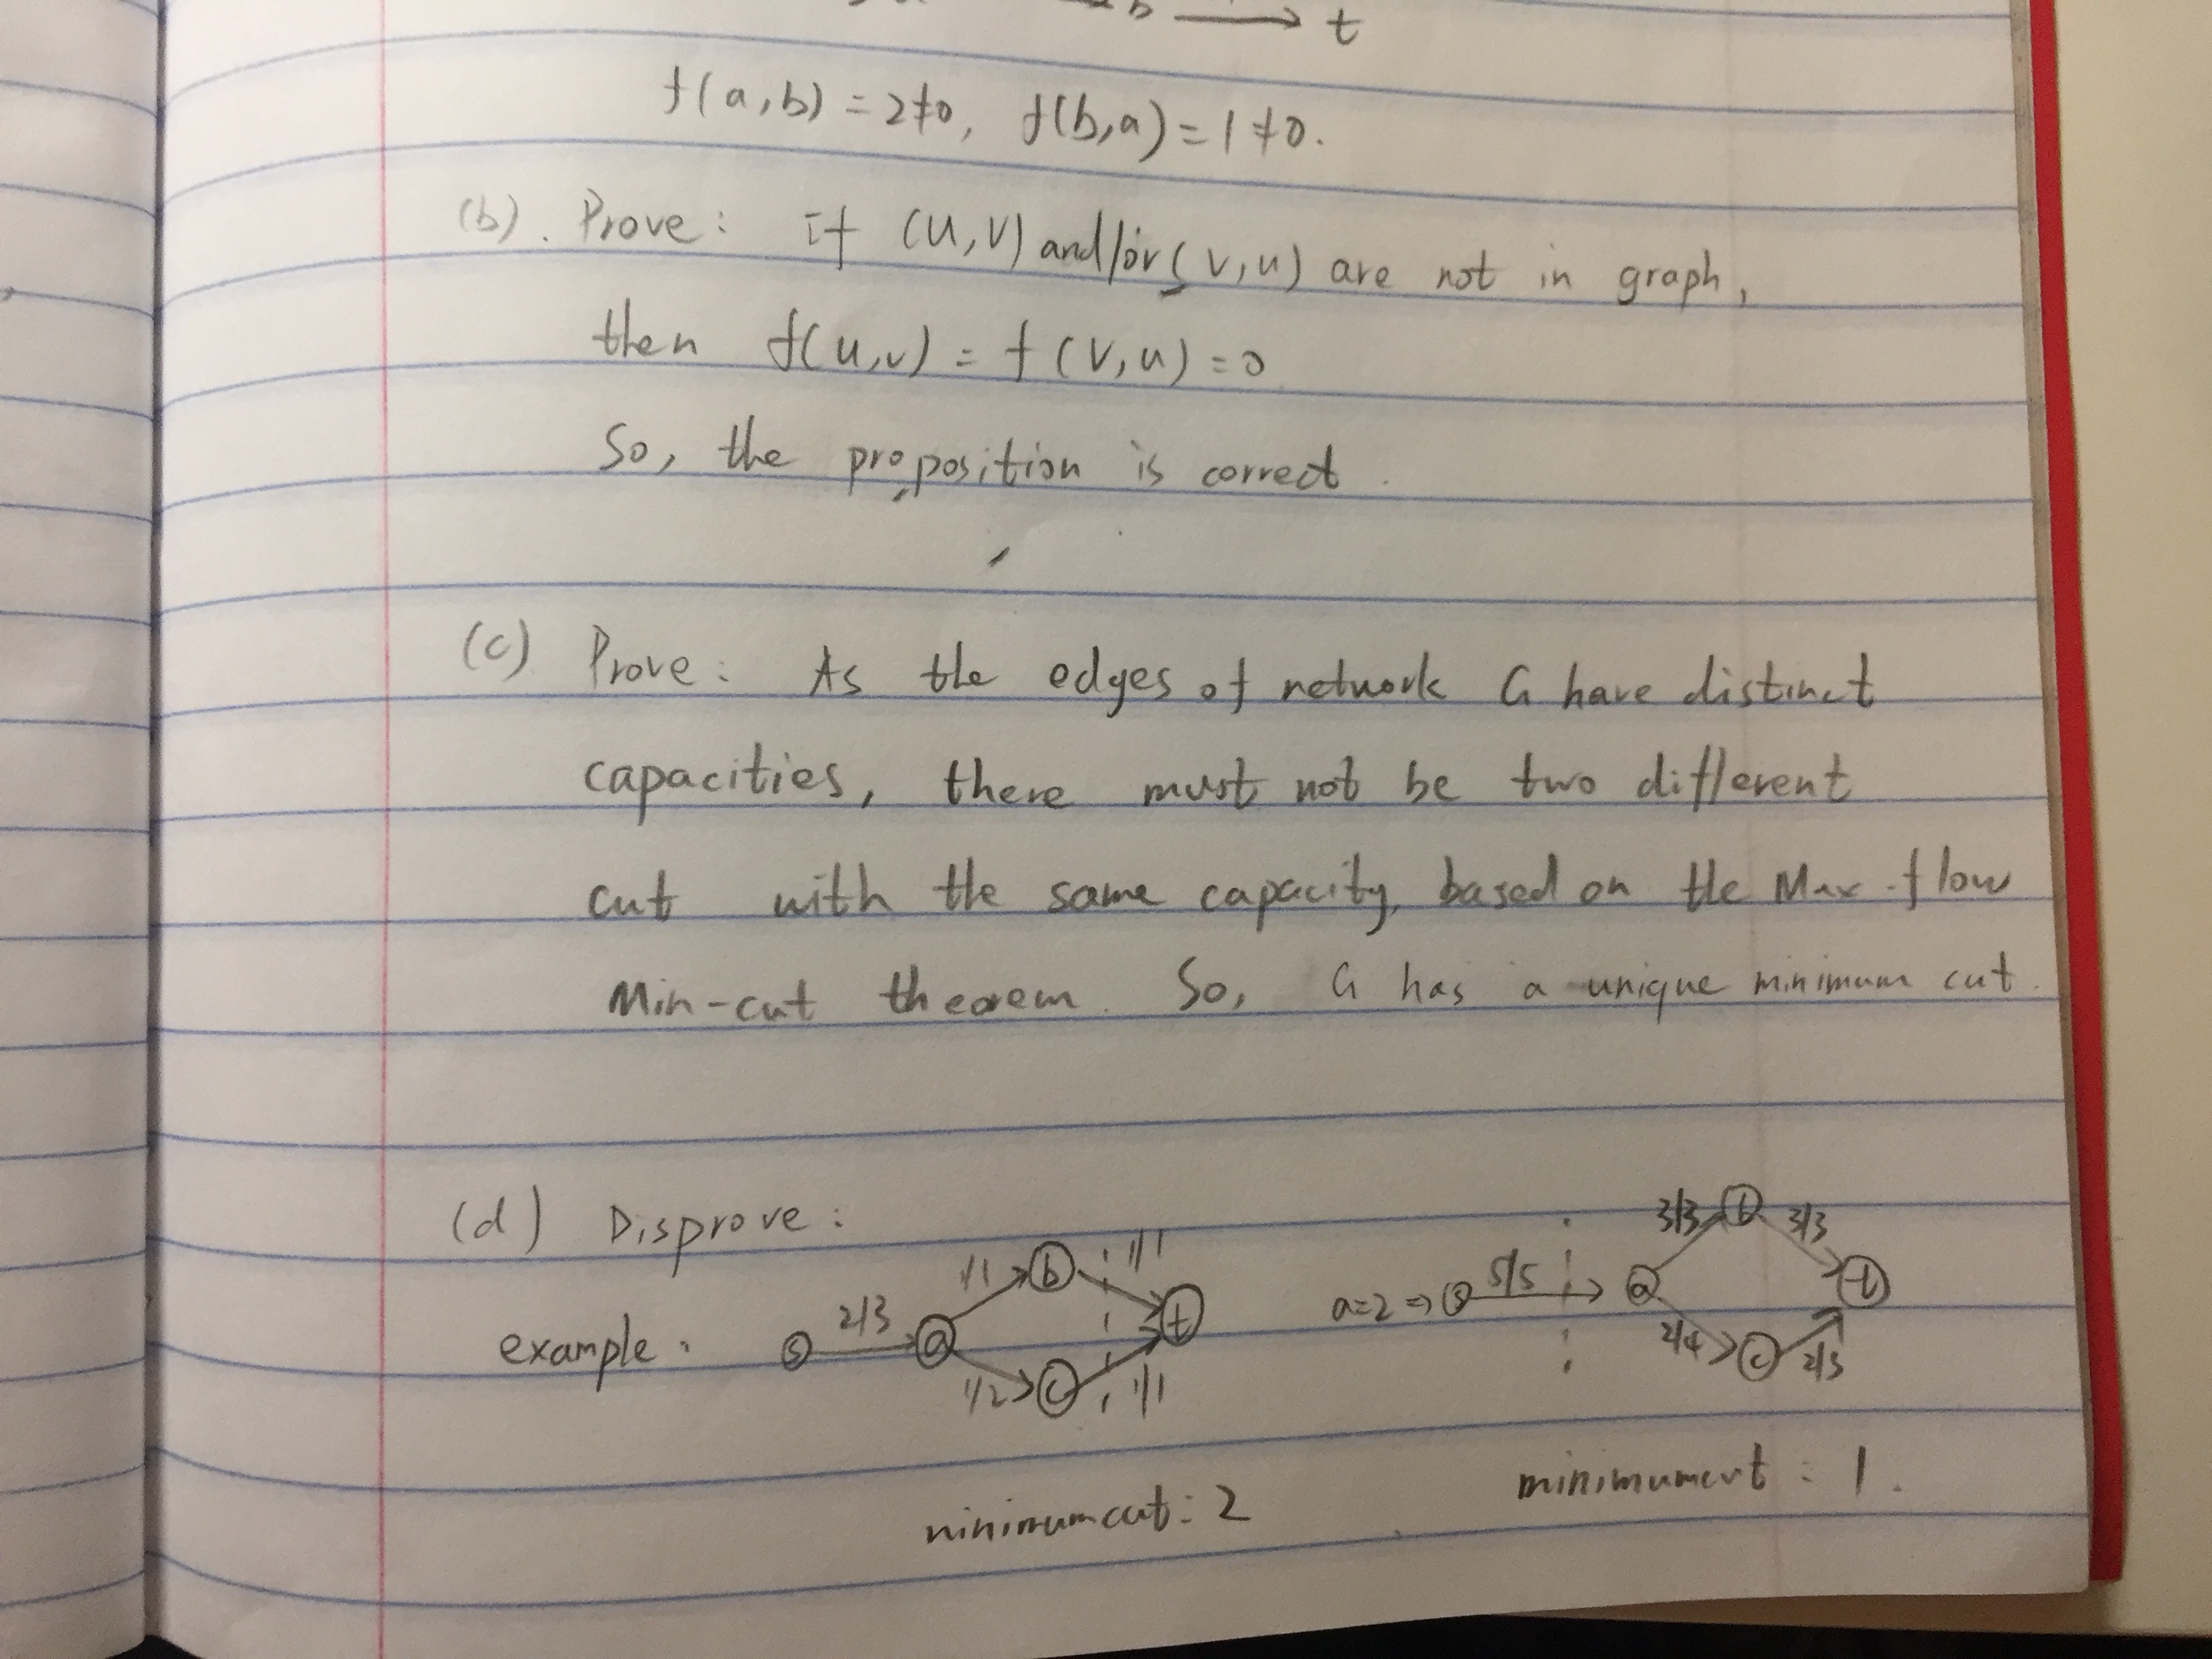 b ⟶ t
f(a,b) = 2≠0, f(b,a) = 1≠0.
(b). Prove: if (u,v) and/or (v,u) are not in graph,
then f(u,v) = f(v,u) = 0
So, the proposition is correct.
(c) Prove: As the edges of network G have distinct
capacities, there must not be two different
cut with the same capacity, based on the Max-flow
Min-cut theorem. So, G has a unique minimum cut.
(d) Disprove:
example: s 2/3 a 1/1 b 1/1 1/2 c 1/1 t
a=2 => s 5/5 a 3/3 b 3/3 2/4 c 2/3 t
minimumcut: 2 minimumcut: 1.